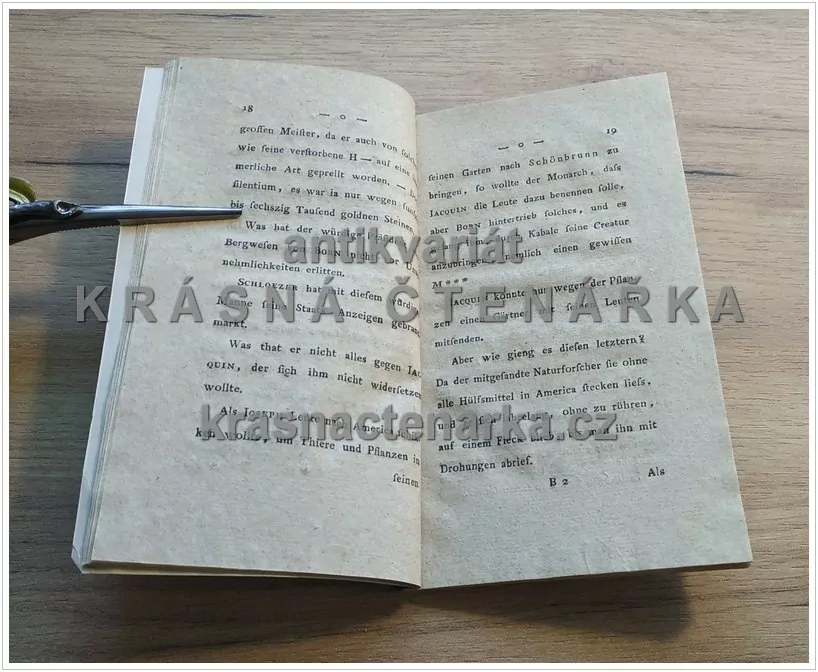 18
— o —
groſſen Meiſter, da er auch von
wie ſeine verſtorbene H — auf eine
merliche Art geprellt worden. —
ſilentium, es war ia nur wegen
bis ſechszig Tauſend goldnen Steinen
Was hat der würdige
Bergweſen von BORN nicht für
nehmlichkeiten erlitten.
SCHLOEZER hat mit dieſem würdi
Manne ſeine Staats Anzeigen gebran
markt.
Was that er nicht alles gegen IAC
QUIN, der ſich ihm nicht widerſetzen
wollte.
Als IOSEPH Leute nach America
ken wollte, um Thiere und Pflanzen in
ſeinen
— o —
19
ſeinen Garten nach Schönbrunn zu
bringen, ſo wollte der Monarch, daſs
IACQUIN die Leute dazu benennen ſolle,
aber BORN hintertrieb ſolches, und es
Kabale ſeine Creatur
anzubringen, nemlich einen gewiſſen
M***
IACQUIN konnte nur wegen der Pflan
zen einen Gärtner mit ſeinen Leuten
mitſenden.
Aber wie gieng es dieſen letztern?
Da der mitgeſandte Naturforſcher ſie ohne
alle Hülfsmittel in America ſtecken lieſs,
und ohne zu rühren,
auf einem Fleck blieb, bis man ihn mit
Drohungen abrief.
B 2
Als
antikvariát
KRÁSNÁ ČTENÁŘKA
krasnactenarka.cz